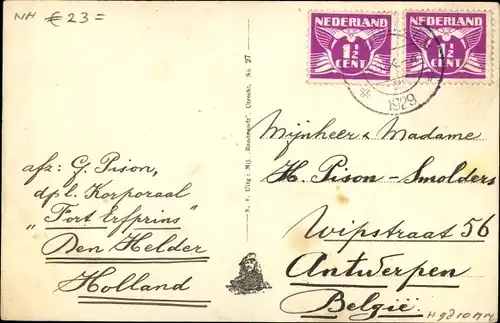 NH € 23=
NEDERLAND
1½
CENT
NEDERLAND
1½
CENT
1929
Mijnheer & Madame
H. Pison-Smolders
Wipstraat 56
Antwerpen
België.
afz: G. Pison,
dpl. Korporaal
"Fort Erfprins"
Den Helder
Holland
N. F. Uitg: Mij. "Rembrandt", Utrecht. No. 27